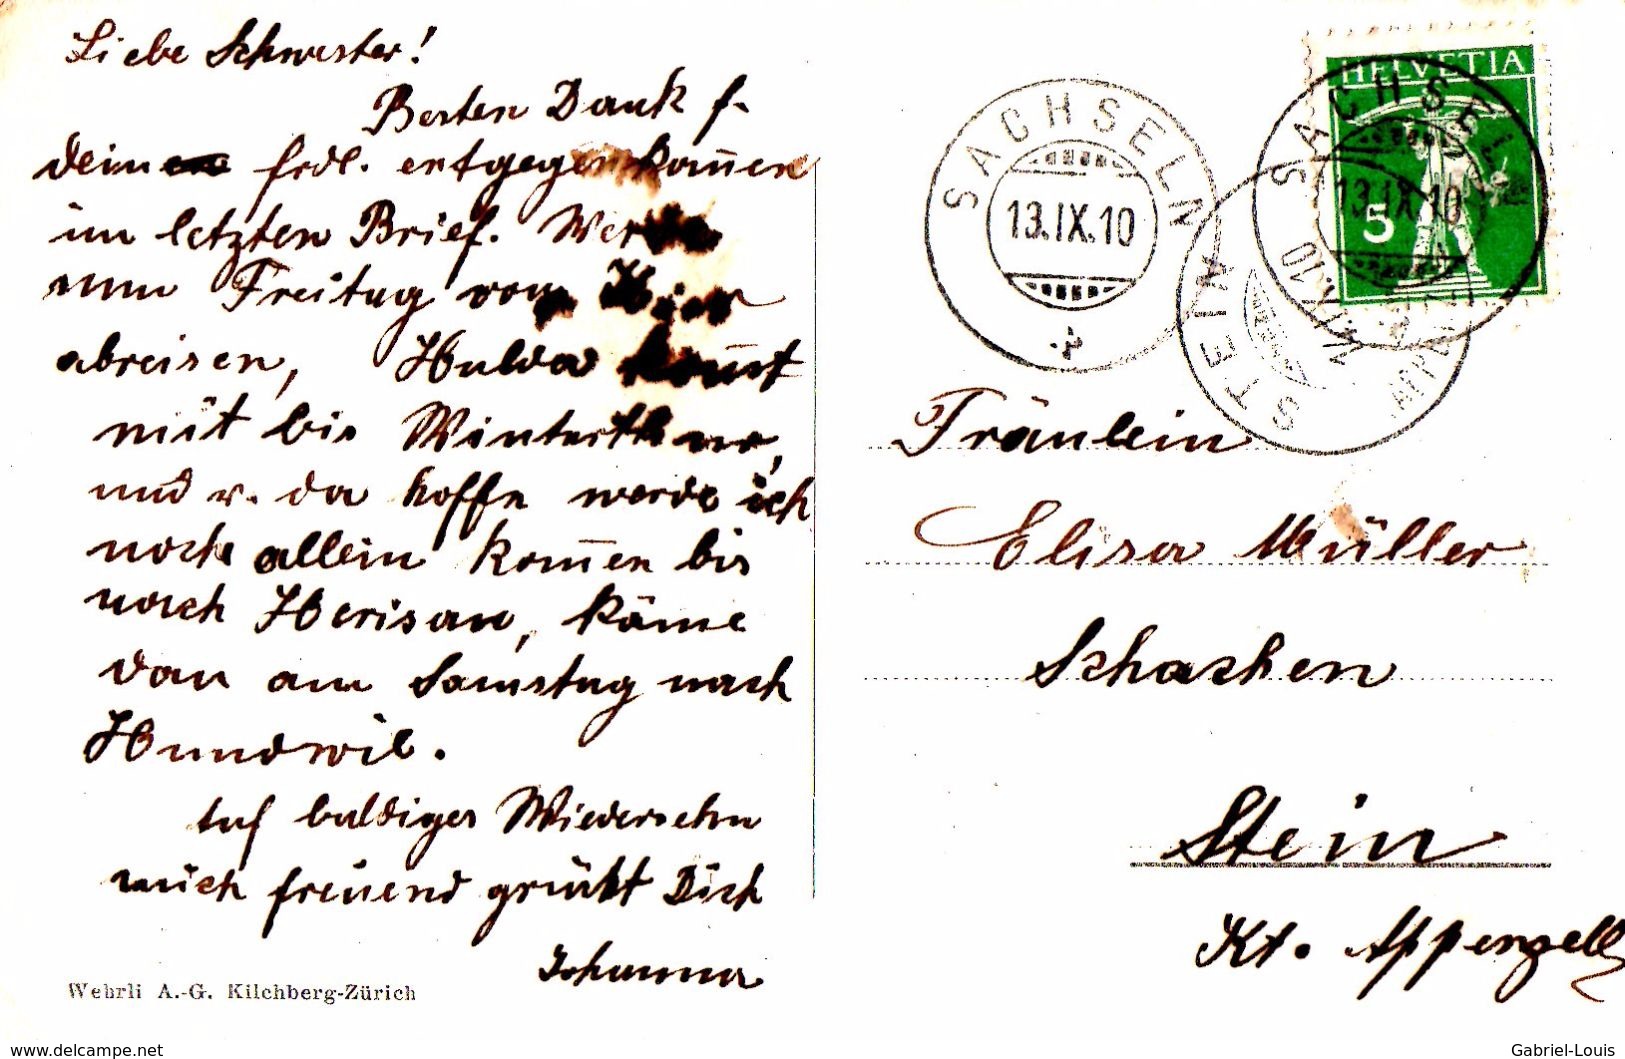 Liebe Schwester!
Besten Dank f.
dein frdl. entgegenkom̅en
im letzten Brief. Werde
nun Freitag von Hier
abreisen, Hulda kom̅t
mit bis Winterthur,
und v. da hoffe werde ich
noch allein kom̅en bis
nach Herisau, käme
dan am Samstag nach
Hundwil.
Auf baldiges Wiedersehn
mich freuend grüßt Dich
Johanna
Wehrli A.-G. Kilchberg-Zürich
SACHSELN
13.IX.10
HELVETIA
5
SACHSELN
13.IX.10
STEIN
Fräulein
Elisa Müller
Schachen
Stein
Kt. Appenzell
delcampe.net
Gabriel-Louis